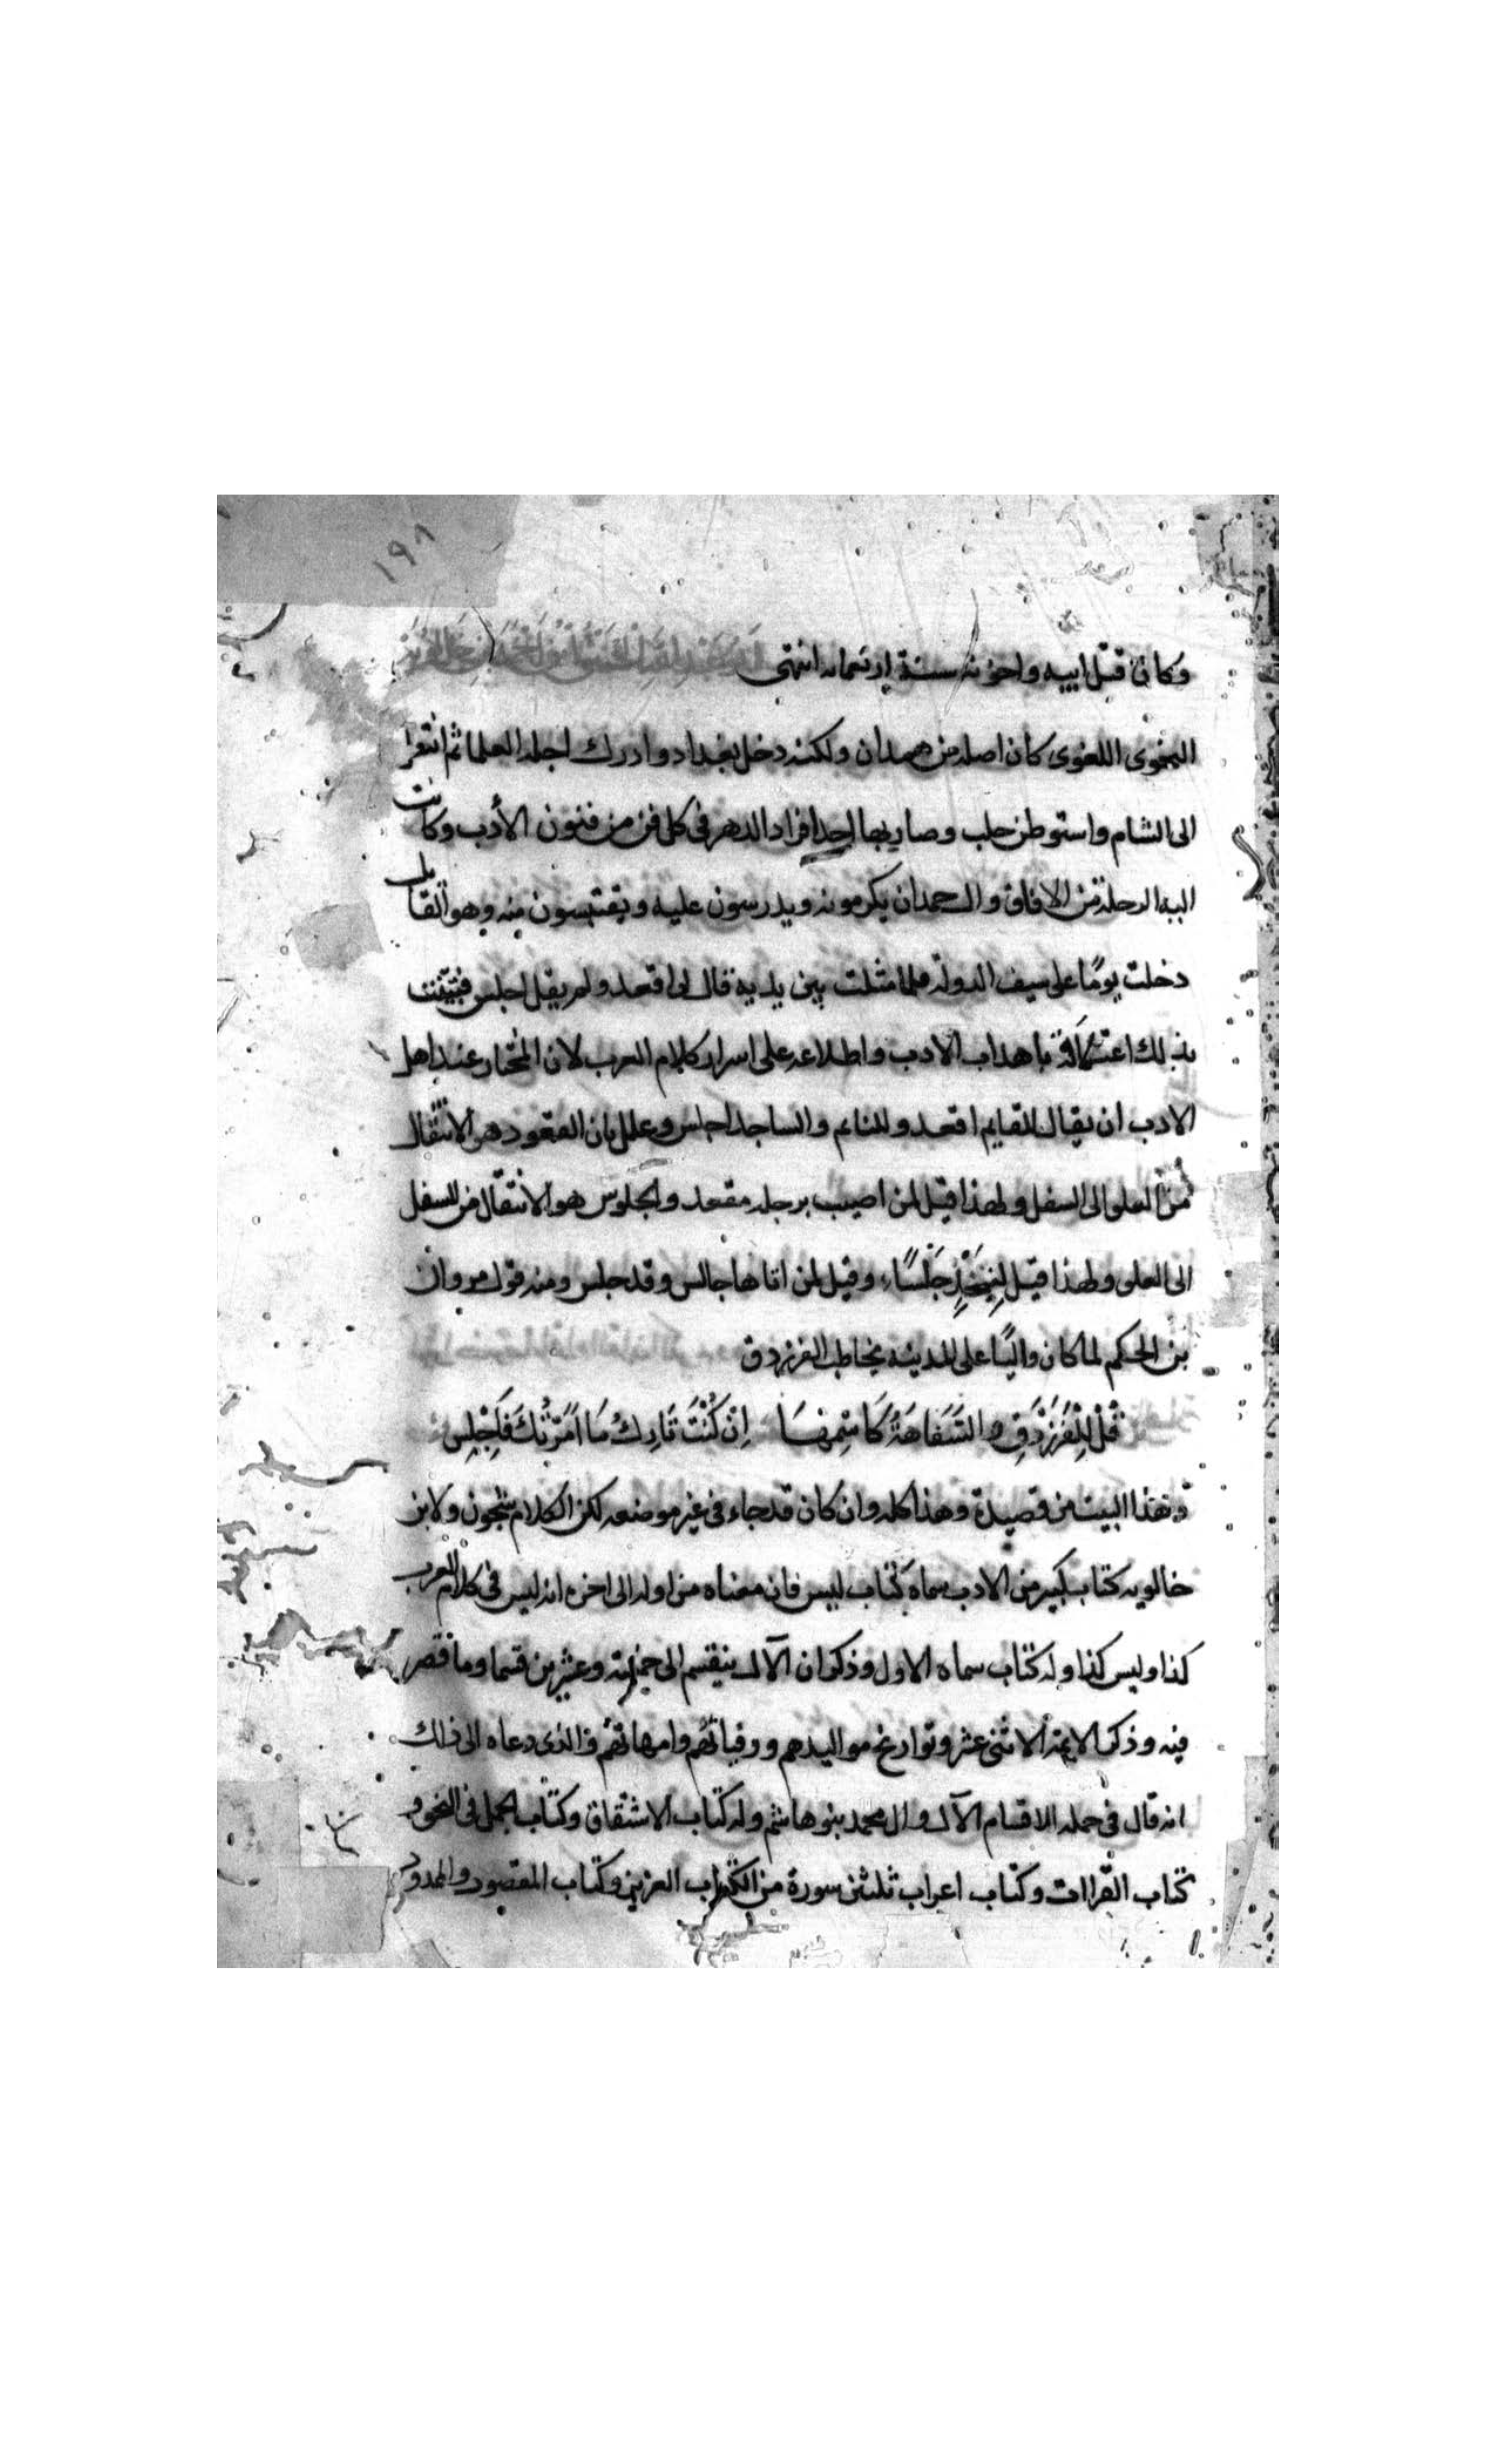 ١٩٨
وكان قتل ابيه واخوته سنة اربعمايه انتهى
النحوى اللغوى كان اصله من همدان ولكنه دخل بغداد وادرك اجله العلما ثم انتقل
الى الشام واستوطن حلب وصار بها احد افراد الدهر فى كل فن من فنون الأدب وكانت
اليه الرحلة من الافاق وال حمدان يكرمونه ويدرسون عليه ويقتبسون منه وهو القايل
دخلت يومًا على سيف الدولة فلما مثلت بين يديه قال لى اقعد ولم يقل اجلس فتبينت
بذلك اعتلاقه باهداب الادب واطلاعه على اسرار كلام العرب لان المختار عند اهل
الادب ان يقال للقايم اقعد وللنايم والساجد اجلس وعلل بان القعود هو الانتقال
من العلو الى السفل ولهذا قيل لمن اصيب برجله مقعد والجلوس هو الانتقال من السفل
الى العلو ولهذا قيل لِنَجْدٍ جَلْسًا، وقيل لمن اتاها جالس وقد جلس ومنه قول مروان
بن الحكم لما كان واليًا على المدينة يخاطب الفرزدق
قُلْ لِلْفَرَزْدَقِ والسَّفَاهَةُ كَاسْمِهَا اِنْ كُنْتَ تَارِكُ مَا اَمَرْتُكَ فَاجْلِسِ
وهذا البيت من قصيدة وهذا كله وان كان قد جاء فى غير موضعه لكن الكلام شجون ولابن
خالويه كتاب كبير من الادب سماه كتاب ليس فان معناه من اوله الى اخره انه ليس فى كلام العرب
كذا وليس كذا وله كتاب سماه الاول وذكر ان الآل ينقسم الى خمسة وعشرين قسما وما قصر
فيه وذكر الايمة الاثنى عشر وتواريخ مواليدهم ووفياتهم وامهاتهم والذى دعاه الى ذلك
انه قال فى جمله الاقسام الآل وال محمد بنو هاشم وله كتاب الاشتقاق وكتاب الجمل فى النحو و
كتاب القراات وكتاب اعراب ثلثين سورة من الكتاب العزيز وكتاب المقصور والمدود